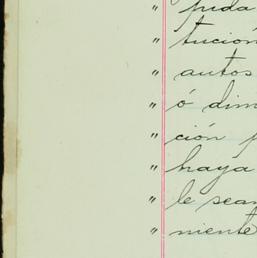 " pida
" tución
" autos
" ó dim
" ción p
" haya
" le sean
" niente